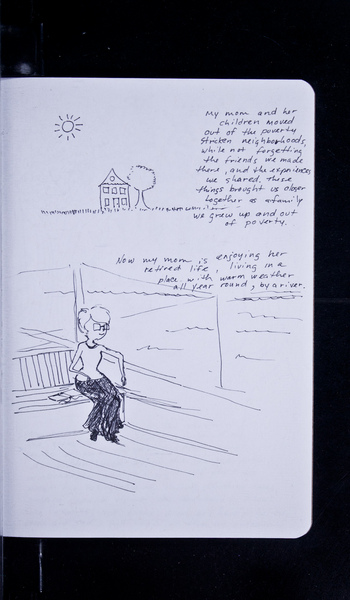 My mom and her
children moved
out of the poverty
stricken neighborhoods,
while not forgetting
the friends we made
there, and the experiences
we shared. These
things brought us closer
together as a family
we grew up and out
of poverty.
Now my mom is enjoying her
retired life, living in a
place with warm weather
all year round, by a river.